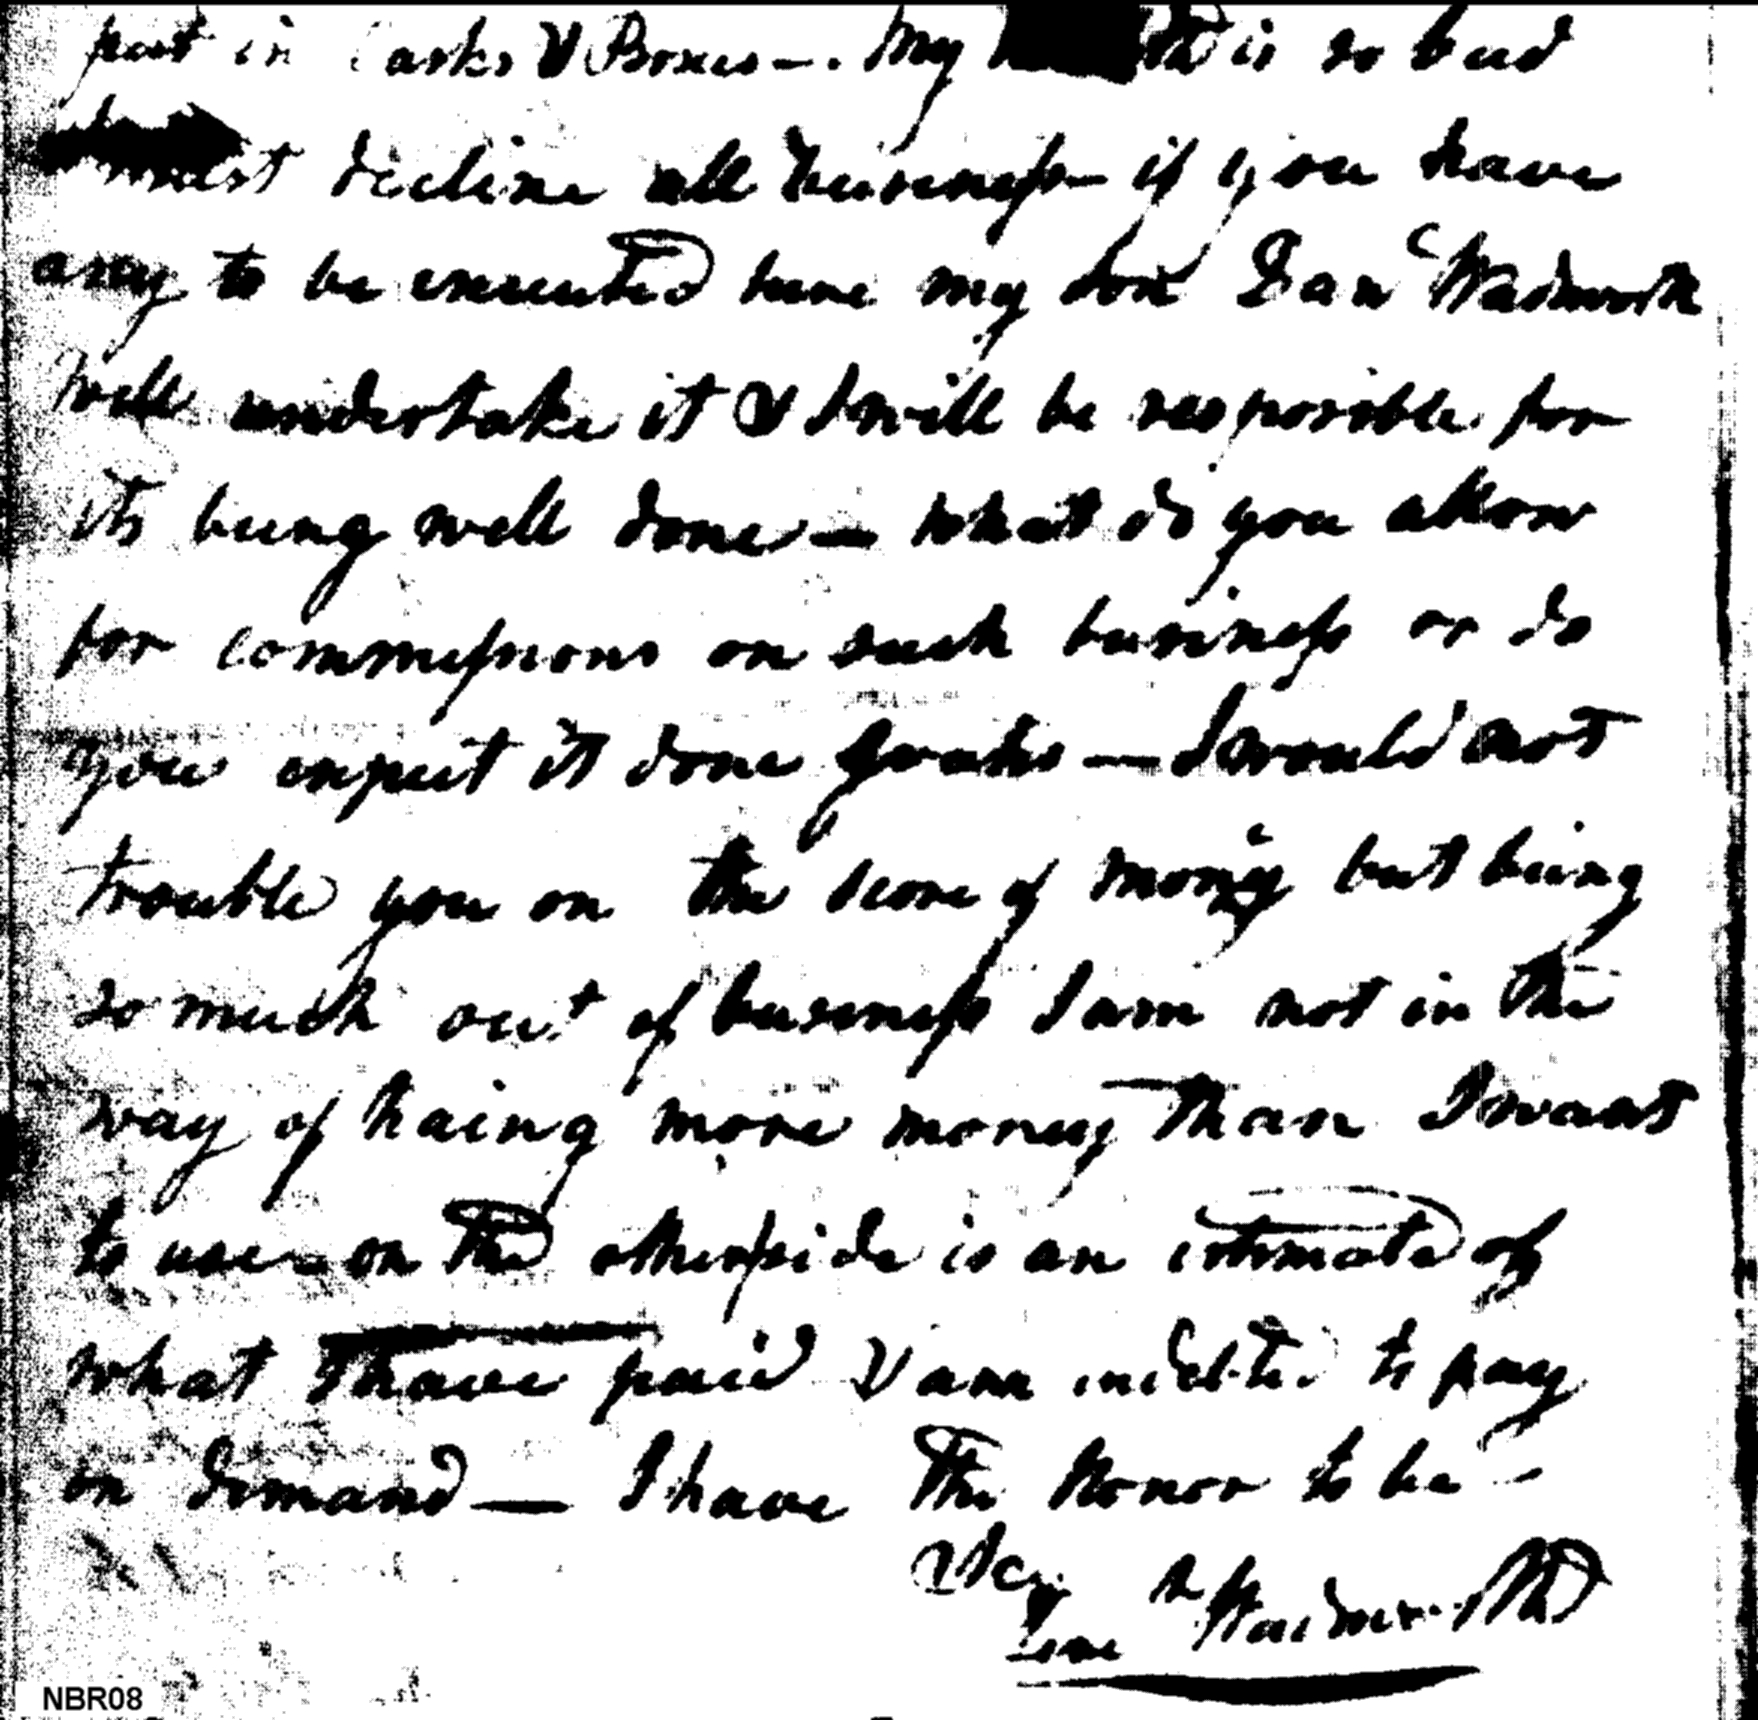 put in Casks & Boxes —. My is so bad
must decline all business — if you have
any to be executed here my son Dan Wadsworth
will undertake it & I will be resposible for
its being well done — what do you allow
for commissions on such business or do
you expect it done gratis — I would not
trouble you on the score of money but being
so much out of business I am not in the
way of haing more money than I want
to use — on the otherside is an estimate of
what I have paid & am indebted to pay
on demand — I have the honor to be —
&c
Wadsworth
NBR08